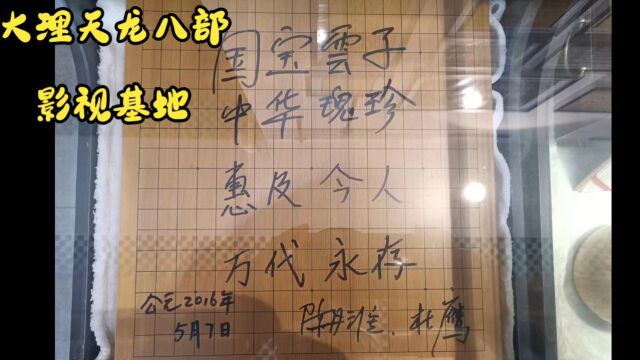 大理天龙八部
影视基地
国宝雲子
中华瑰珍
惠及今人
万代永存
公元2016年
5月7日
陈祖德、杜鹰